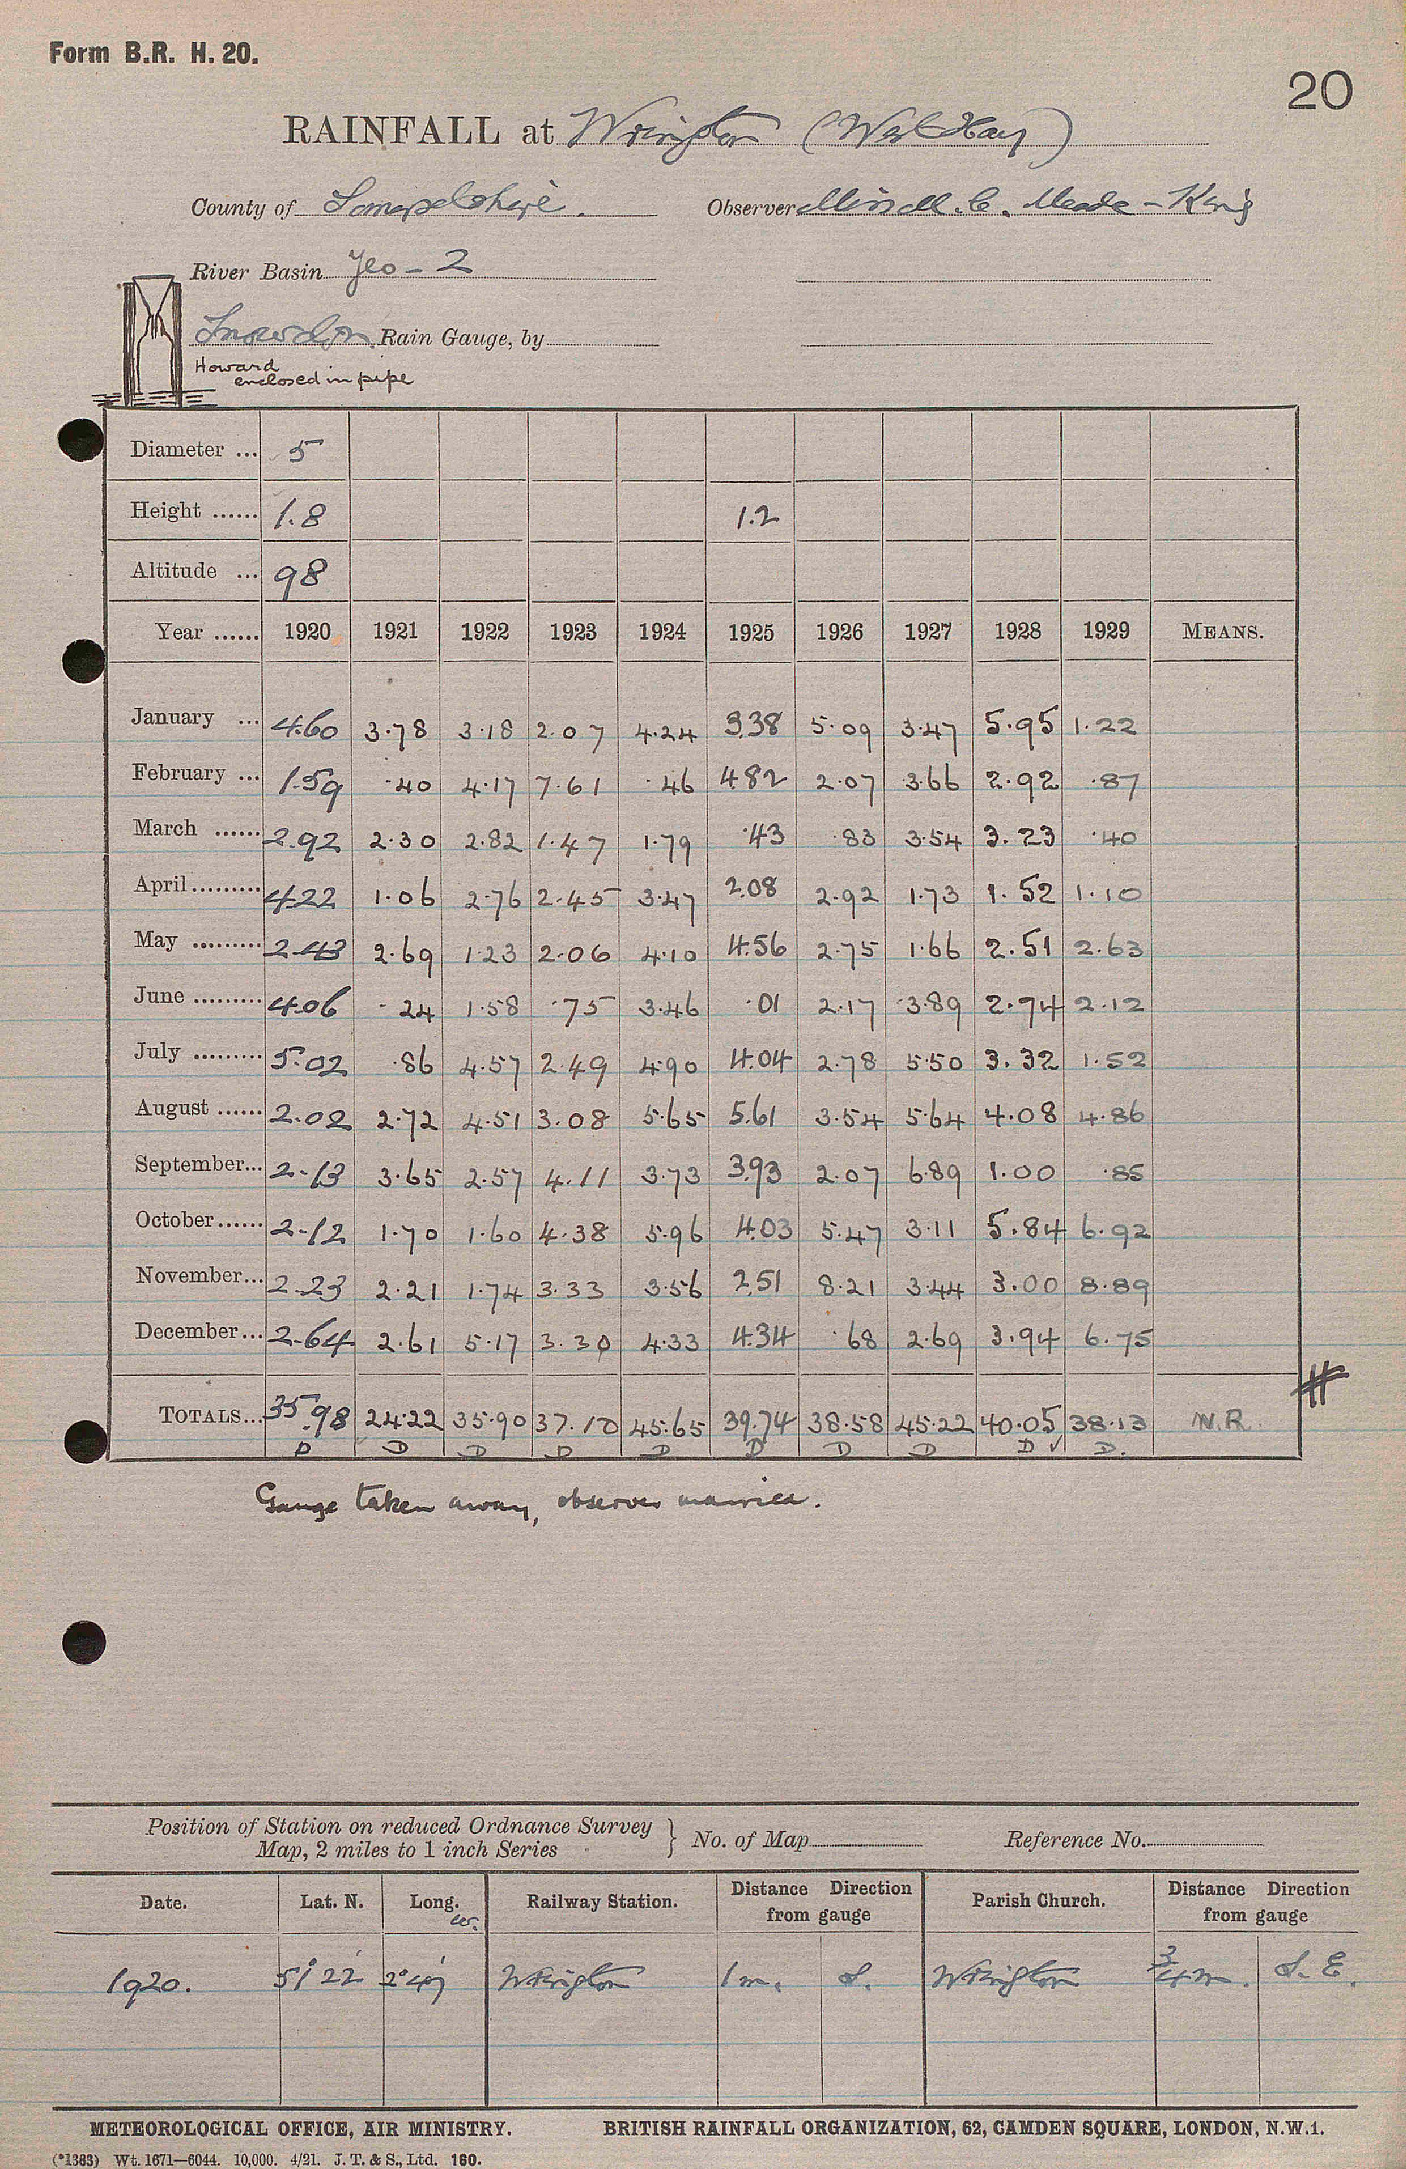 Form B.R. H. 20.
20
RAINFALL at Wrington (West Hay)
County of Somersetshire. Observer Miss M. C. Meade-King
River Basin Yeo - 2
Snowdon Rain Gauge, by
Howard
enclosed in pipe
Diameter ... 5
Height ...... 1.8 1.2
Altitude ... 98
Year ...... 1920 1921 1922 1923 1924 1925 1926 1927 1928 1929 MEANS.
January ... 4.60 3.78 3.18 2.07 4.24 3.38 5.09 3.47 5.95 1.22
February ... 1.59 .40 4.17 7.61 .46 4.82 2.07 3.66 2.92 .87
March ...... 2.92 2.30 2.82 1.47 1.79 .43 .83 3.54 3.23 .40
April ......... 4.22 1.06 2.76 2.45 3.47 2.08 2.92 1.73 1.52 1.10
May ......... 2.43 2.69 1.23 2.06 4.10 4.56 2.75 1.66 2.51 2.63
June ......... 4.06 .24 1.58 .75 3.46 .01 2.17 3.89 2.74 2.12
July ......... 5.02 .86 4.57 2.49 4.90 4.04 2.78 5.50 3.32 1.52
August ...... 2.02 2.72 4.51 3.08 5.65 5.61 3.54 5.64 4.08 4.86
September... 2.13 3.65 2.57 4.11 3.73 3.93 2.07 6.89 1.00 .85
October...... 2.12 1.70 1.60 4.38 5.96 4.03 5.47 3.11 5.84 6.92
November... 2.23 2.21 1.74 3.33 3.56 2.51 8.21 3.44 3.00 8.89
December... 2.64 2.61 5.17 3.30 4.33 4.34 .68 2.69 3.94 6.75
#
TOTALS... 35.98 24.22 35.90 37.10 45.65 39.74 38.58 45.22 40.05 38.13 N.R.
D D D D D D D D D ✓ D.
Gauge taken away, observer married.
Position of Station on reduced Ordnance Survey
Map, 2 miles to 1 inch Series } No. of Map Reference No.
Date. Lat. N. Long. W. Railway Station. Distance Direction from gauge Parish Church. Distance Direction from gauge
1920. 51°22' 2°47' Wrington 1 m. S. Wrington 3/4 m. S.E.
METEOROLOGICAL OFFICE, AIR MINISTRY. BRITISH RAINFALL ORGANIZATION, 62, CAMDEN SQUARE, LONDON, N.W.1.
(*1383) Wt. 1671—6044. 10,000. 4/21. J. T. & S., Ltd. 160.